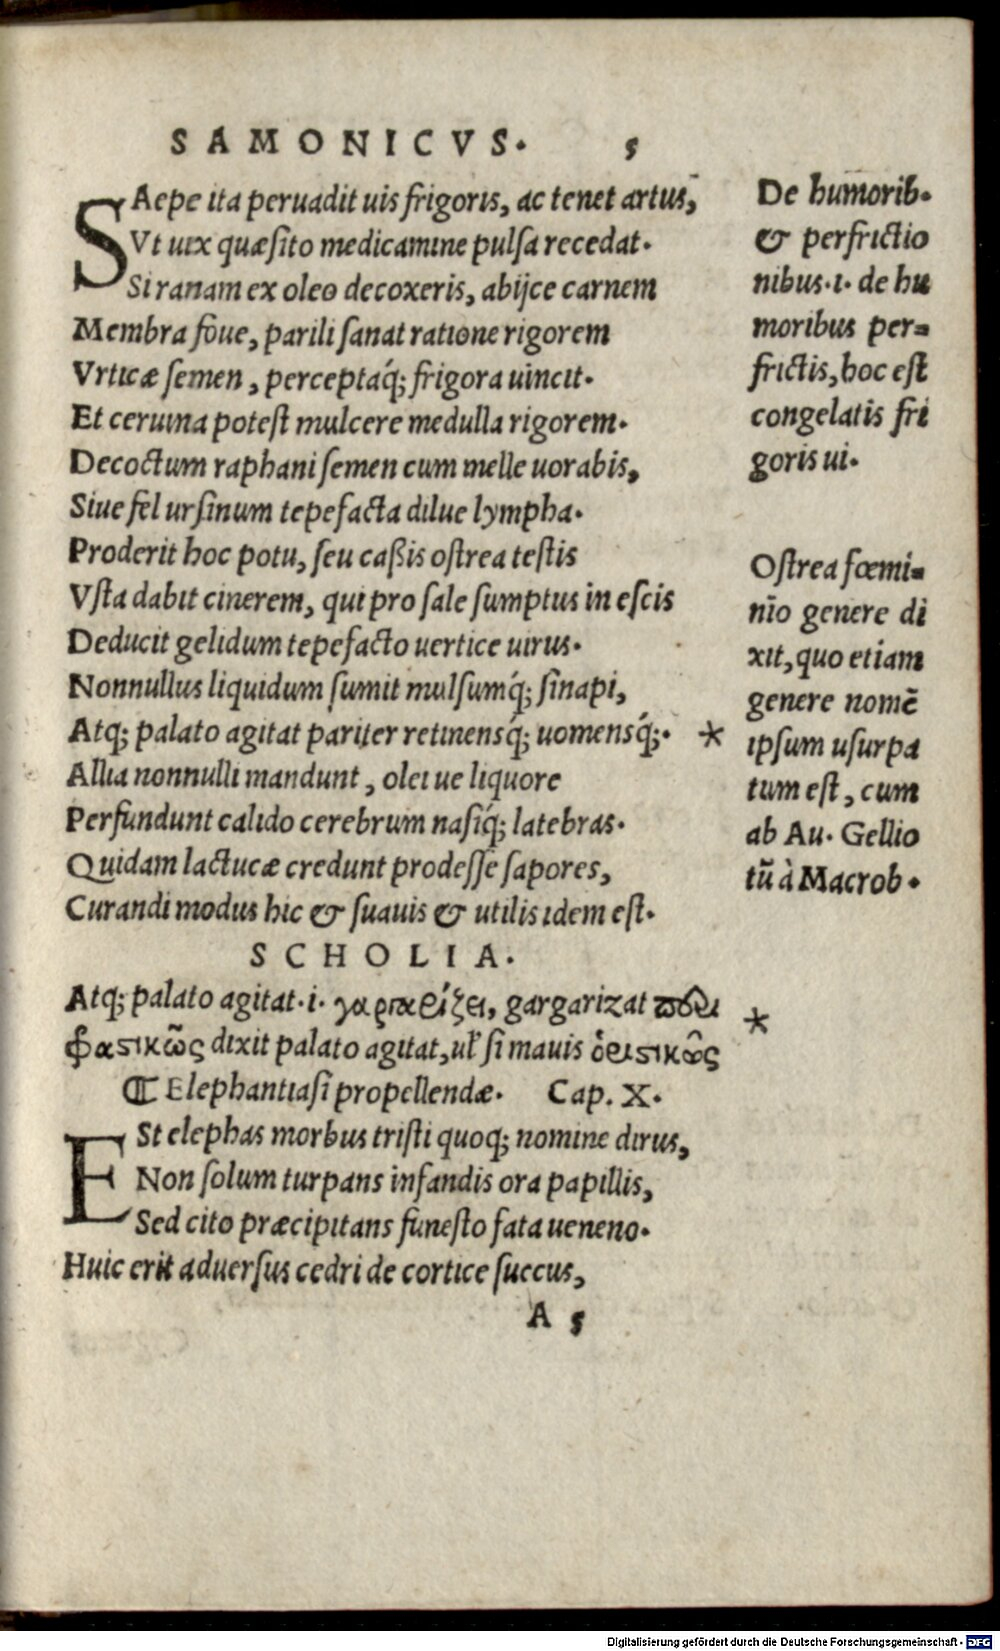 SAMONICVS. 5
SAepe ita peruadit uis frigoris, ac tenet artus,
Vt uix quæsito medicamine pulsa recedat.
Si ranam ex oleo decoxeris, abijce carnem
Membra foue, parili sanat ratione rigorem
Vrticæ semen, perceptaq́; frigora uincit.
Et ceruina potest mulcere medulla rigorem.
Decoctum raphani semen cum melle uorabis,
Siue fel ursinum tepefacta dilue lympha.
Proderit hoc potu, seu caßis ostrea testis
Vsta dabit cinerem, qui pro sale sumptus in escis
Deducit gelidum tepefacto uertice uirus.
Nonnullus liquidum sumit mulsumq́; sinapi,
Atq; palato agitat pariter retinensq́; uomensq́;. *
Allia nonnulli mandunt, olei ue liquore
Perfundunt calido cerebrum nasiq́; latebras.
Quidam lactucæ credunt prodesse sapores,
Curandi modus hic & suauis & utilis idem est.
De humorib.
& perfrictio
nibus.i. de hu
moribus per=
frictis, hoc est
congelatis fri
goris ui.
Ostrea fœmi=
nīo genere di
xit, quo etiam
genere nomē
ipsum usurpa
tum est, cum
ab Au. Gellio
tū à Macrob.
SCHOLIA.
Atq; palato agitat.i. γαργαρίζει, gargarizat *
φραστικῶς dixit palato agitat, ul' si mauis ὁριστικῶς
¶ Elephantiasi propellendæ. Cap. X.
ESt elephas morbus tristi quoq; nomine dirus,
Non solum turpans infandis ora papillis,
Sed cito præcipitans funesto fata ueneno.
Huic erit aduersus cedri de cortice succus,
A 5
Digitalisierung gefördert durch die Deutsche Forschungsgemeinschaft - DFG